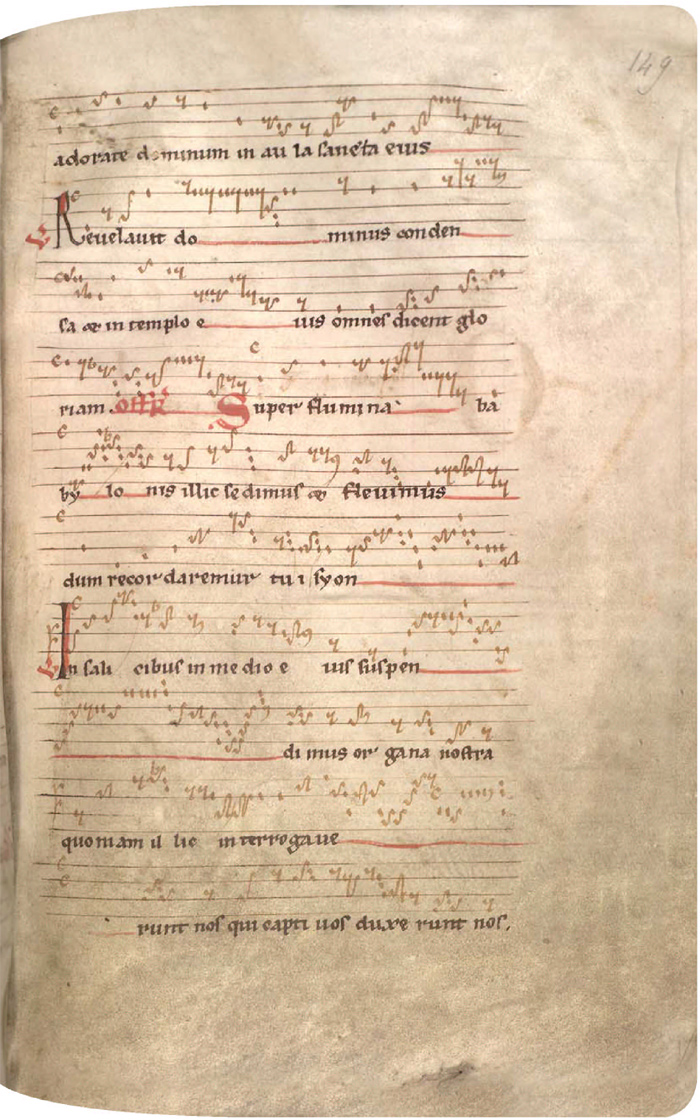 149
adorate dominum in au la sancta eius
Reuelauit do minus conden
sa & in templo e ius omnes dicent glo
riam. Super flumina ba
by lo nis illic sedimus & fleuimus
dum recor daremur tu i syon
In sali cibus in me dio e ius suspen
di mus or gana nostra
quoniam il lic interrogaue
runt nos qui capti uos duxe runt nos.